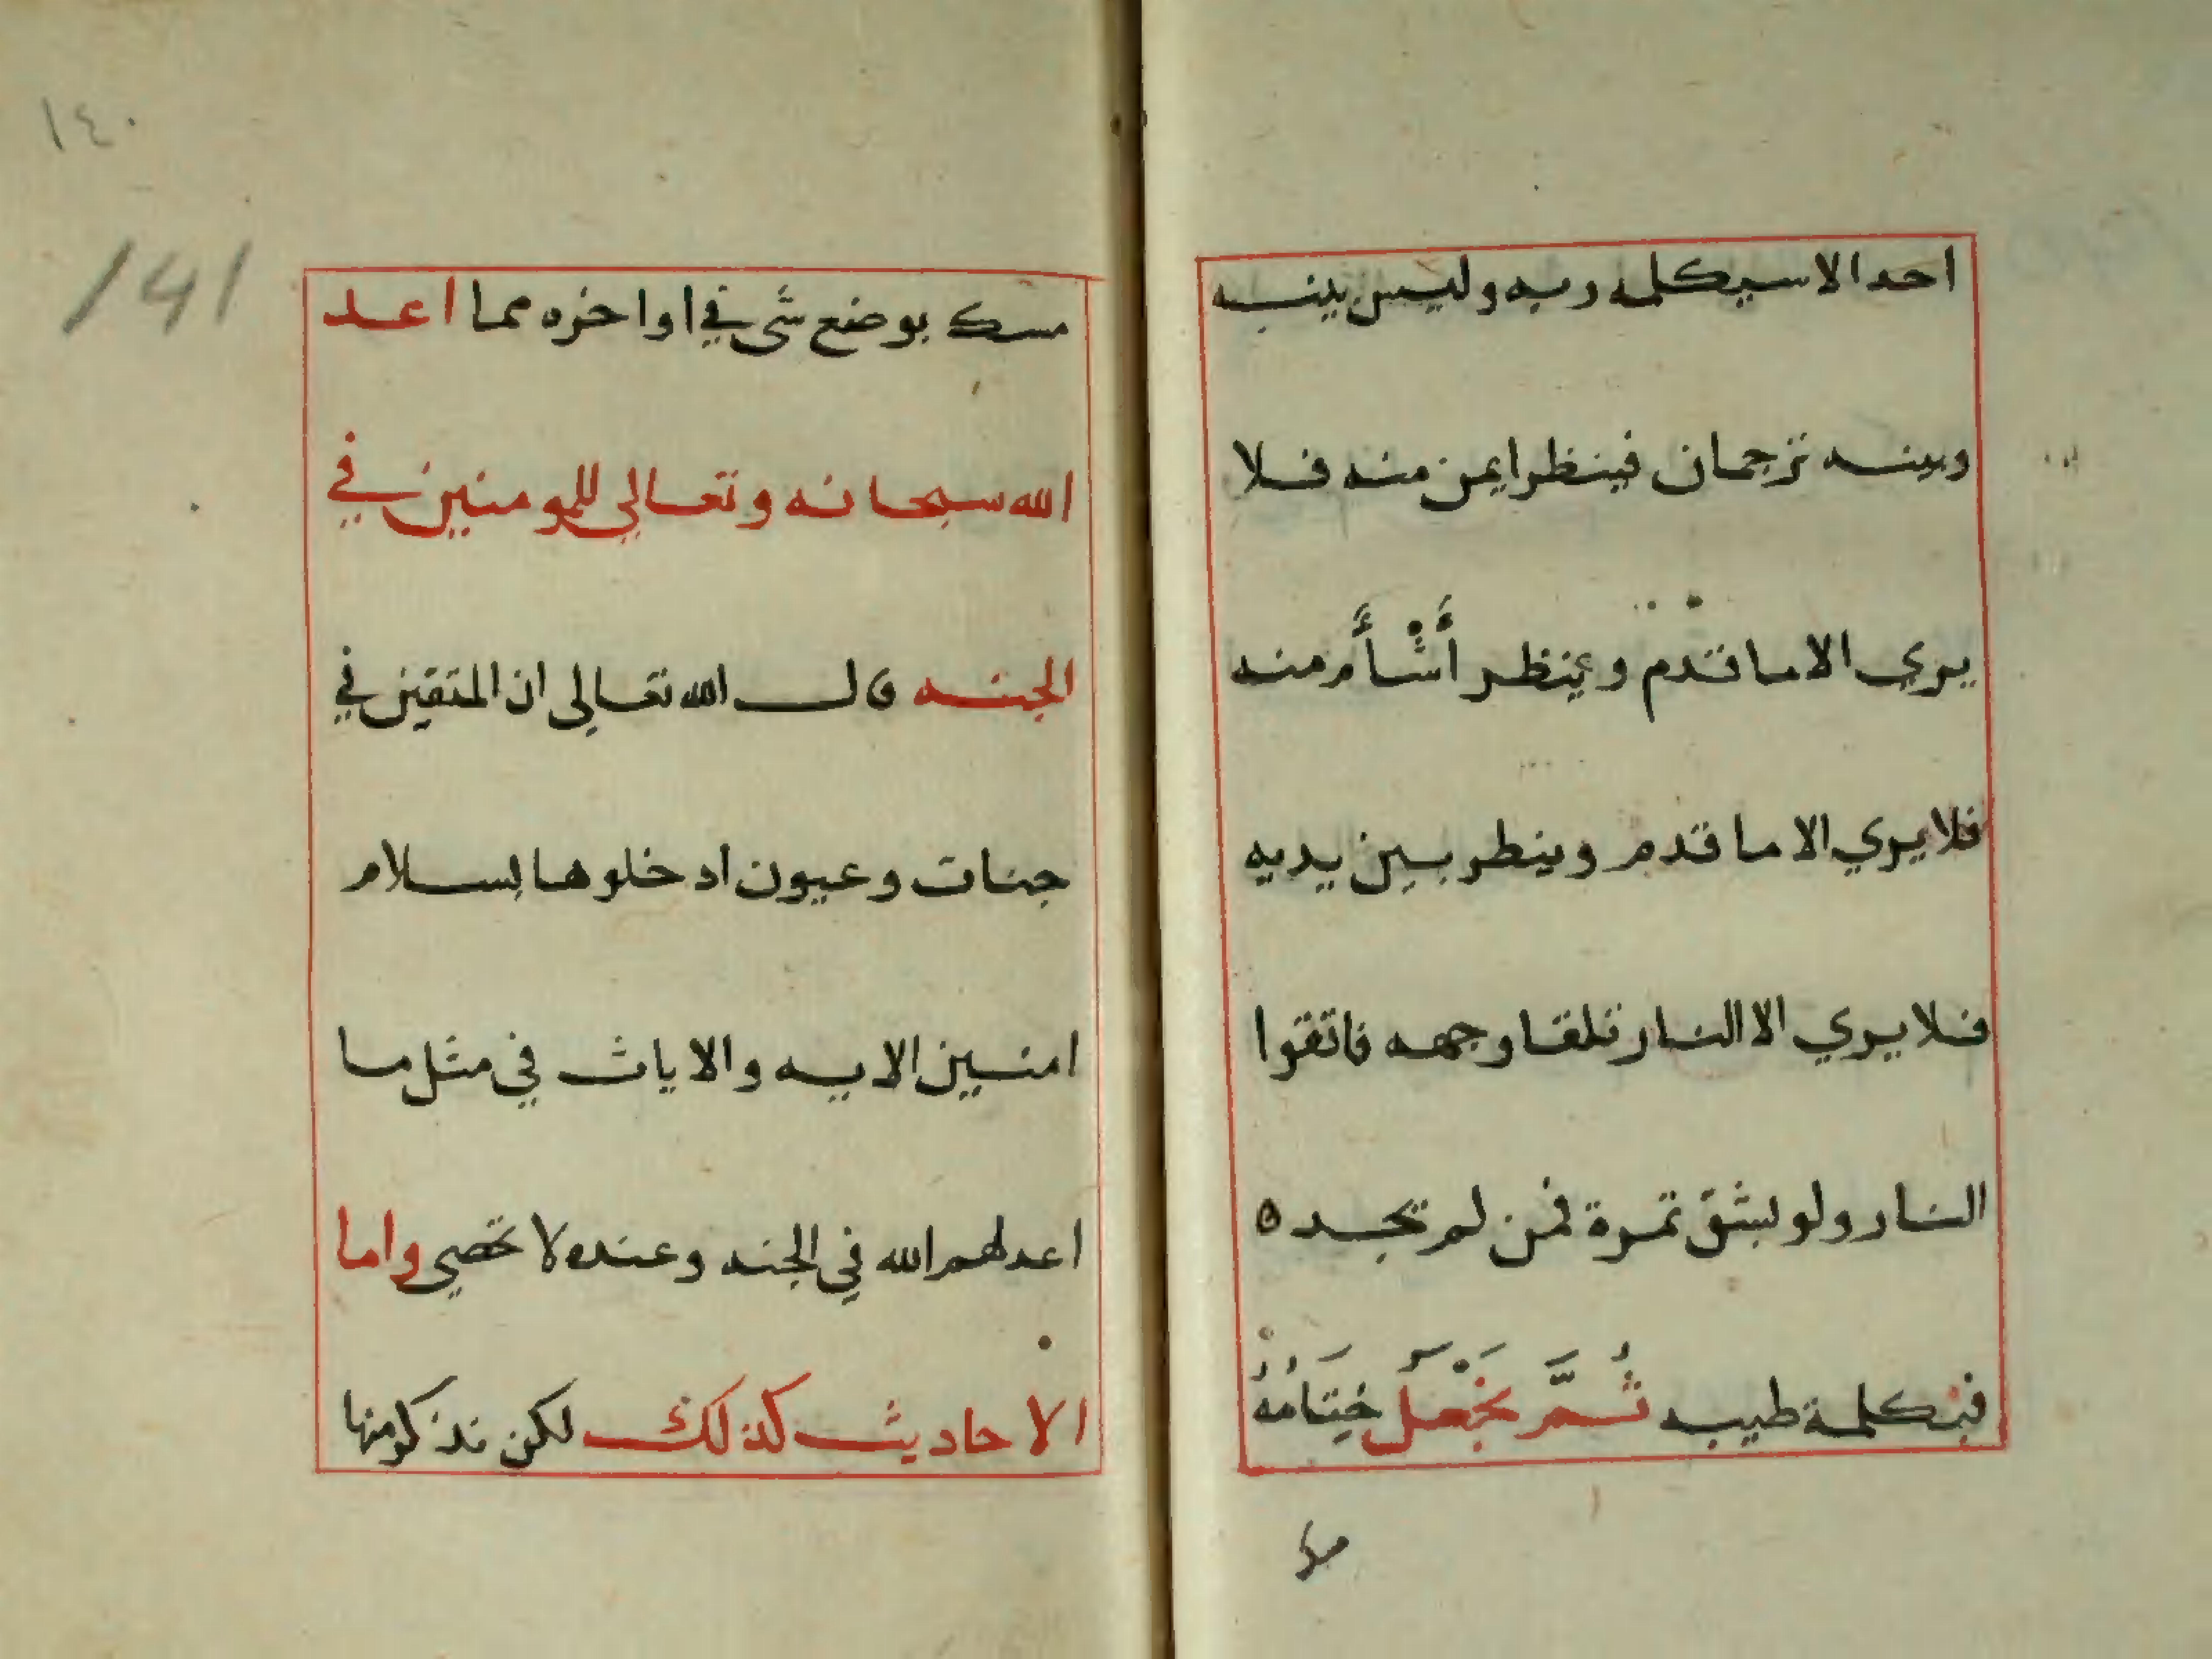 احد الا سيكلمه ربه وليس بينه
وبينه ترجمان فينظر ايمن منه فلا
يري الا ما قدم وينظر أَشْأَم منه
فلا يري الا ما قدم وينظر بين يديه
فلا يري الا النار تلقا وجهه فاتقوا
النار ولو بشق تمرة فمن لم يجد ه
فبكلمة طيبه ثُمَّ نَجْعَل خِتَامُهُ
١٤٠
141
مسك بوضع شي في اواخره مما اعد
الله سبحانه وتعالي للمومنين في
الجنه قال الله تعالي ان المتقين في
جنات وعيون ادخلوها بسلام
امنين الايه والايات في مثل ما
اعد لهم الله في الجنه وعنده لا تحصي واما
الاحاديث كذلك لكن نذكر منها